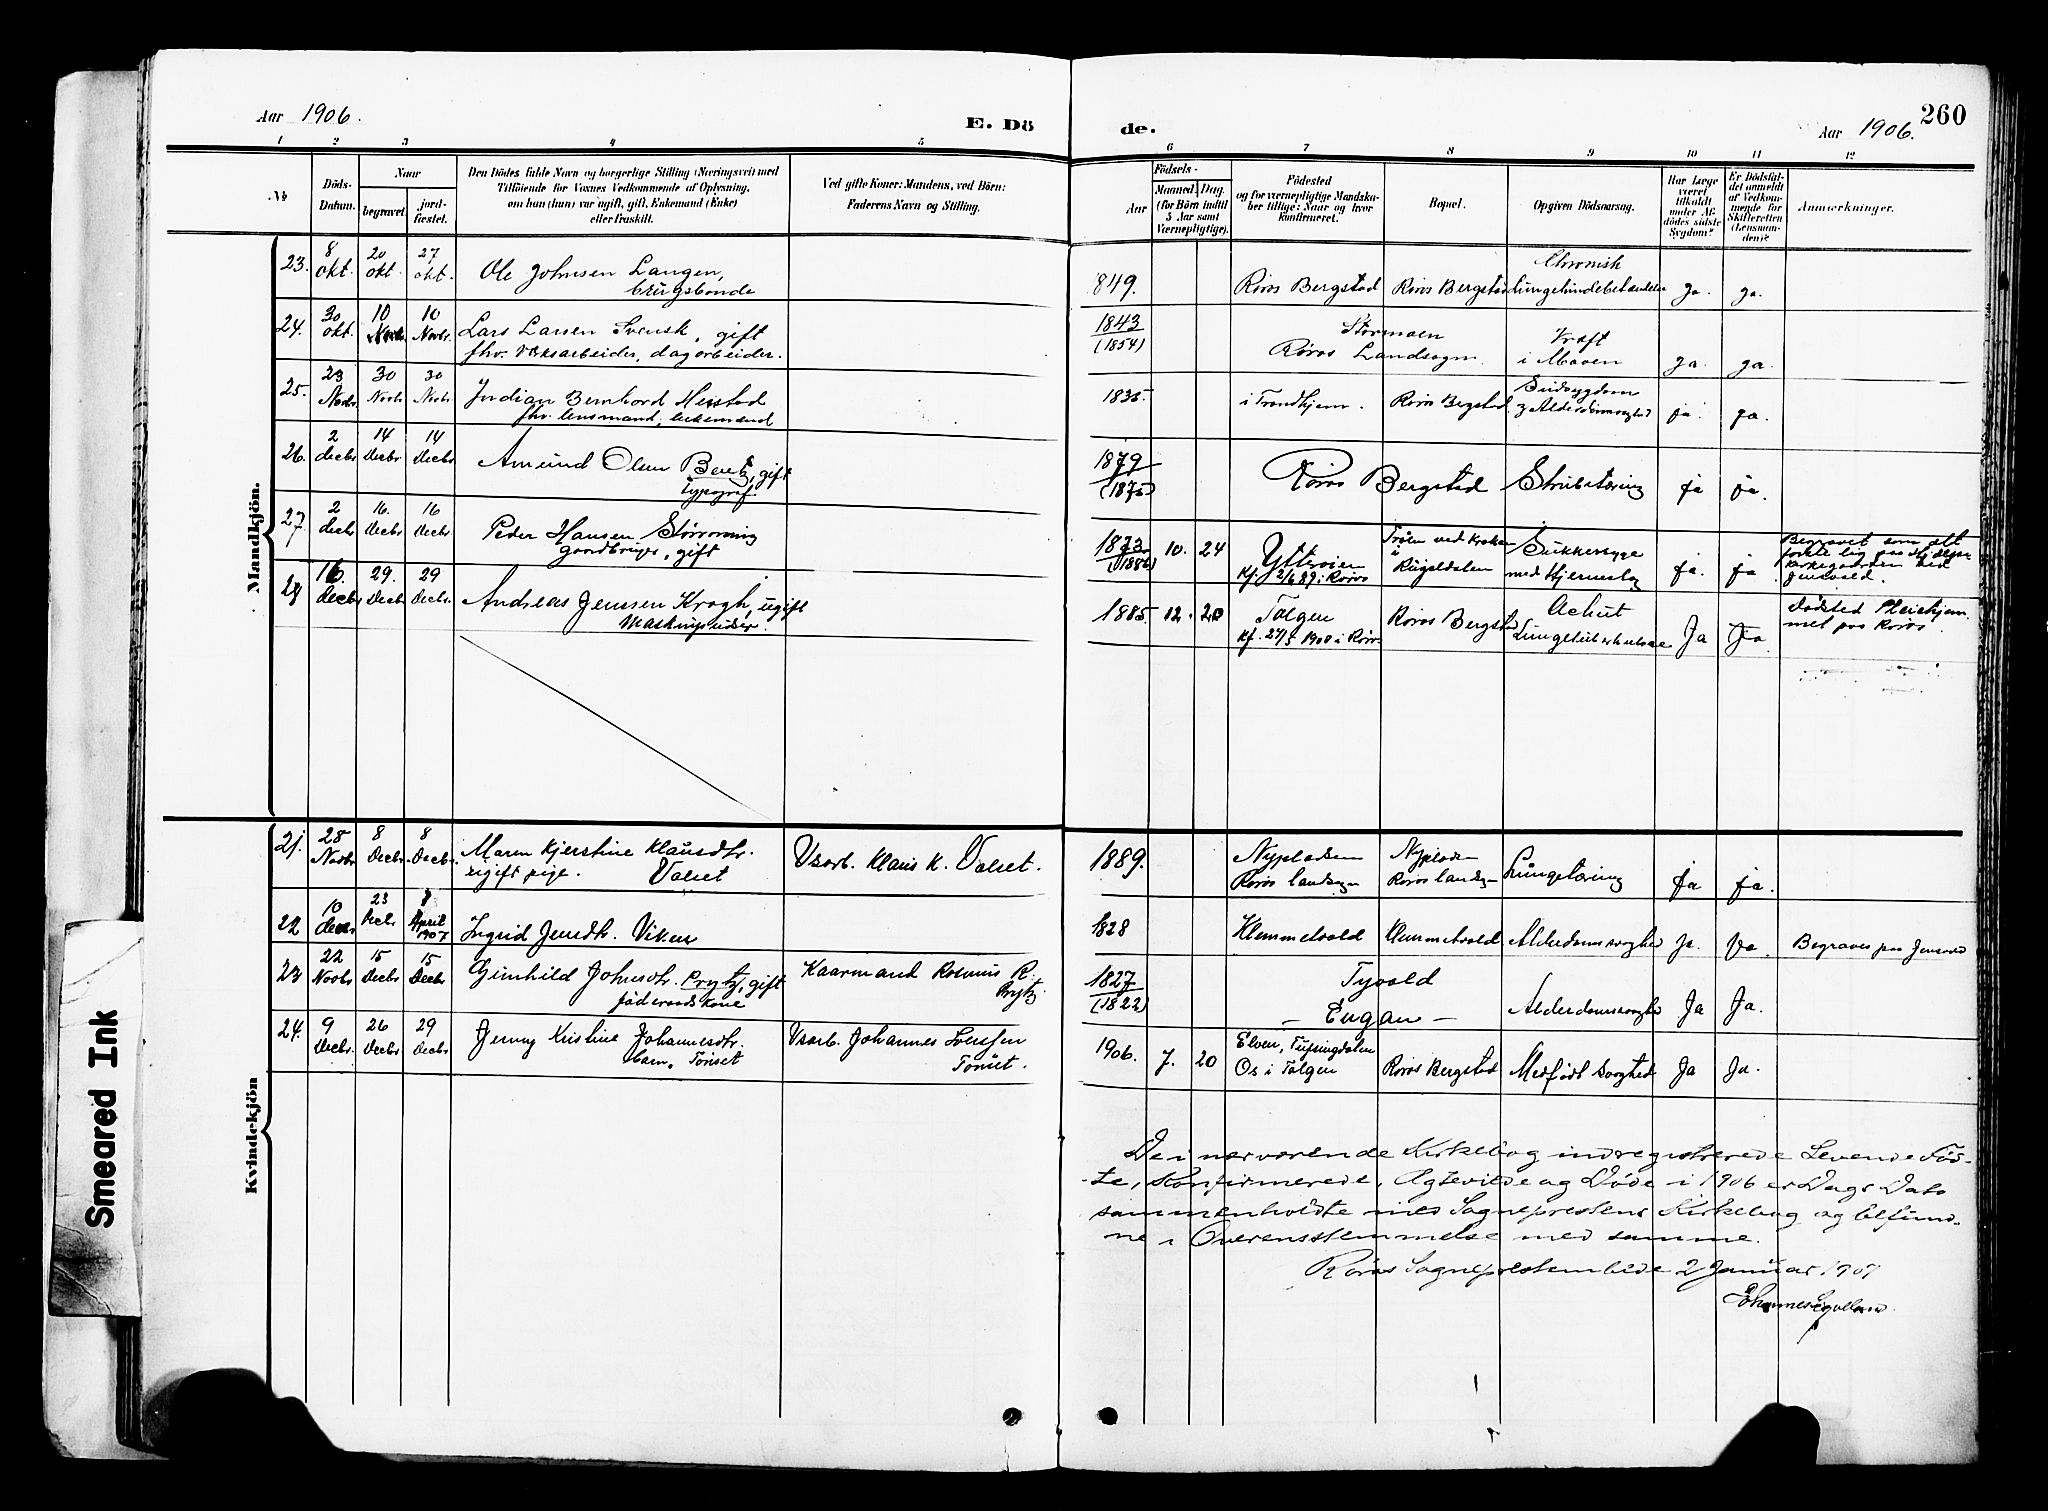 Aar 1906.
E. Dö
de.
Aar 1906.
260
1 2 3 4 5 6 7 8 9 10 11 12
No
Döds-
Datum.
Naar
begravet.
jord-
fæstet.
Den Dödes fulde Navn og borgerlige Stilling (Næringsvei) med
Tilföiende for Voxnes Vedkommende af Oplysning,
om han (hun) var ugift, gift, Enkemand (Enke)
eller fraskilt.
Ved gifte Koner: Mandens, ved Börn:
Faderens Navn og Stilling.
Födsels-
Aar
Maaned. Dag.
(for Börn indtil
5 Aar samt
Værnepligtige).
Födested
og for værnepligtige Mandska-
ber tillige: Naar og hvor
konfirmeret.
Bopæl.
Opgiven Dödsaarsag.
Har Læge
været
tilkaldt
under Af-
dödes sidste
Sygdom?
Er Dödsfal-
det anmeldt
af Vedkom-
mende for
Skifteretten
(Lensman-
den)?
Anmærkninger.
Mandkjön.
23. 8 okt. 20 okt. 27 okt. Ole Johnsen Langen,
brugsbonde
849. Røros Bergstad Røros Bergstad Chronisk
Lungehindebetændelse ja. ja.
24. 30 okt. 10 Novbr. 10 Novbr. Lars Larsen Svensk, gift
fhv. verksarbeider, dagarbeider.
1843
(1854) Stormoen
Røros Landsogn. Kræft
i Maven ja. ja.
25. 23 Novbr. 30 Novbr. 30 Novbr. Jordian Bernhard Meistad
fhv. lensmand, enkemand
1835. i Trondhjem. Røros Bergstad.
& Alderdomssvaghed ja. ja.
26. 2 decbr. 14 Decbr 14 Decbr Amund Olsen Bentz, gift
Typograf.
1879
(1875) Røros Bergstad Strubetæring ja ja.
27. 2 decbr. 16. Decbr 16 Decbr. Peder Hansen
gaardbruger, gift
1873 10. 24 Ytterøien
Kf. i Røros Trøen ved
i Rugeldalen Sukkersyge
med Hjerneslag ja. ja
Begravet som
kirkegaarden ved
Jensvold.
28 16. Decbr 29. Decbr 29 Decbr. Andreas Jenssen Kragh, ugift
1885. 12. 20 Tolgen
Kf. 27/5 1900 i Røros Røros Bergstad Achut
Lungetuberkulose Ja Ja.
dødsted Pleiehjem-
met paa Røros.
Kvindekjön
21. 28 Novbr 8 Decbr. 8 Decbr. Maren Kjerstine Klausdtr.
ugift pige. Valset
Vsarb. Klaus K. Valset.
1889. Nypladsen
Røros landsogn Nypladsen
Røros landsogn Lungetæring ja ja.
22 10 decbr 23 Decbr. April 1907 Ingrid Jensdtr. Viken
1828 Klemmetvold Klemmetvold Alderdomssvaghed Ja. Ja Begraves paa Jensvold
23 22 Novbr 15 Decbr 15 Decbr Gunhild Johnsdtr. Prytz, gift
føderaadskone
Kaarmand Rasmus R.
Prytz.
1827
(1822) Tyvold
- Engan - Alderdomssvaghed Ja Ja.
24. 9 Decbr. 26 Decbr 29 Decbr Jenny Kristine Johannesdtr.
barn, Tønset
Vsarb. Johannes Iverssen
Tønset.
1906. 7. 20 Elven, Tufsingdalen
Os i Tolgen Røros Bergstad Medfødt svaghed Ja Ja.
De i nærværende Kirkebog indregistrerede Levende Fød-
te, Konfirmerede, Ægteviede og Døde i 1906 er Dags Dato
sammenholdte med Sognepræstens Kirkebog og befund-
ne i Overensstemmelse med samme.
Røros Sognepræstembede 2 Januar 1907
Smeared Ink